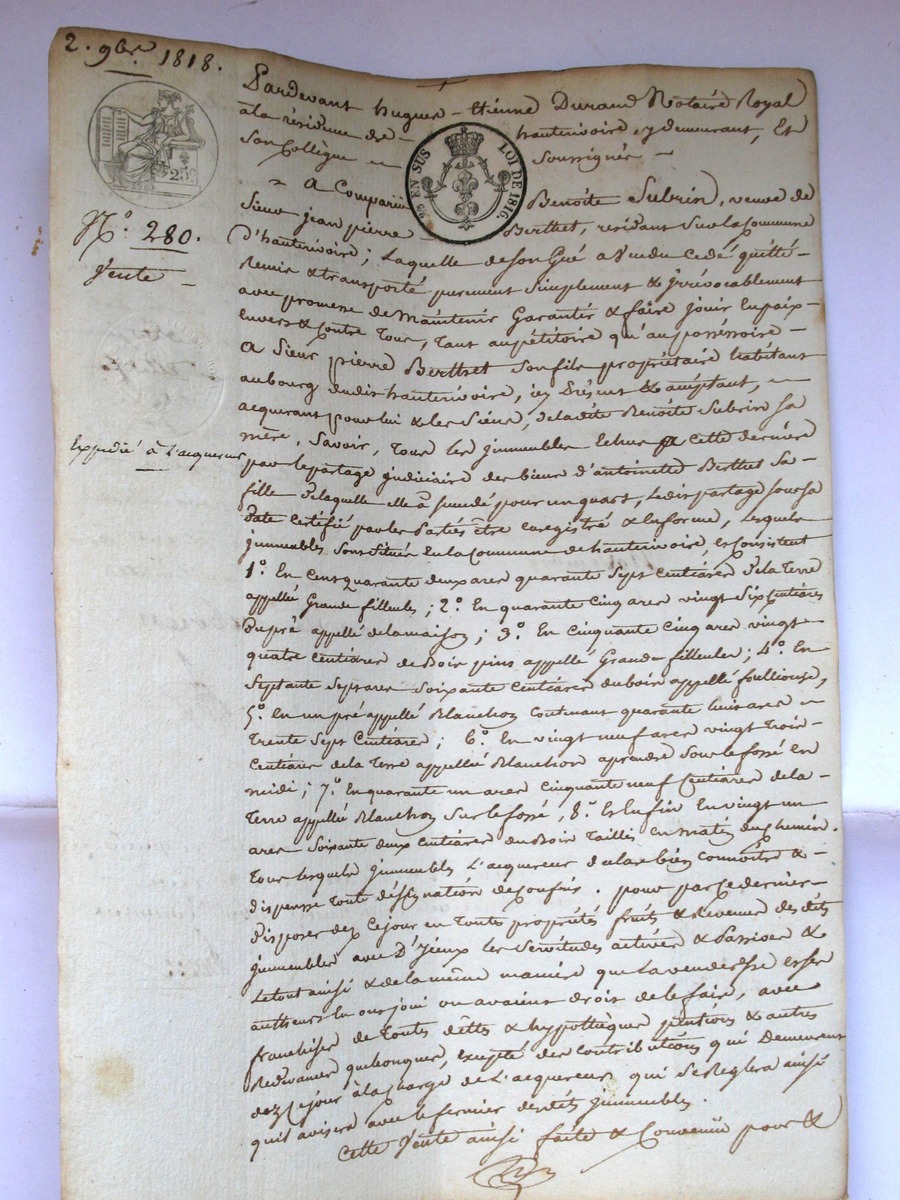 2. 9bre 1818.
Pardevant hugues - étienne Durand Notaire Royal
à la résidence de hauterivoire, y demeurant, Et
Son Collègue Soussignés
25c EN SUS LOI DE 1816.
25c
N.º 280.
Vente
A Comparu Benoite Subrin, veuve de
Sieur jean pierre Berthet, résidant Sur la Commune
D'hauterivoire; Laquelle de Son Gré a Vendu Cedé quitté
Remis & transporté purement Simplement & Irrévocablement
avec promesse de Maintenir Garantir & faire jouir En paix
Envers & Contre Tous, Tant au pétitoire qu'au possessoire
A Sieur pierre Berthet Son fils propriétaire habitant
au bourg dudit hauterivoire, ici Présent & acceptant,
acquerant pour lui & les Siens, de ladite Benoite Subrin Sa
Expedié à L'acquereur
mère, Savoir, Tous les jmmeubles Echus a cette dernière
par le partage judiciaire des biens d'antoinette Berthet Sa
fille De laquelle elle à Succedé pour un quart, Ledit partage Sous Sa
Date Certifié par les Parties être Enregistré & En forme, Lesquels
jmmeubles Sont Situés En la Commune de hauterivoire, & Consistent
1.º En Cent quarante deux ares quarante Sept Centiares De la Terre
appellée Grande filleules; 2.º En quarante Cinq ares vingt Six Centiares
Du pré appellé de la maison; 3.º En Cinquante Cinq ares vingt
quatre Centiares de Bois pins appellé Grande filleules; 4.º En
Septante Sept ares Soixante Centiares du bois appellé foulliouse,
5.º En un pré appellé Blanchon Contenant quarante huit ares
Trente Sept Centiares; 6.º En vingt neuf ares vingt Trois
Centiares de la Terre appellée Blanchon a prendre Sous le fossé En
midi; 7.º En quarante un ares Cinquante neuf Centiares de la
Terre appellée Blanchon Sur le fossé, 8.º Et Enfin En vingt un
ares Soixante deux Centiares du Bois Taillis En matin du Chemin.
Tous lesquels jmmeubles L'acquereur a dit bien Connoitre &
dispense Toute désignation de Confins. pour par Ce dernier
disposer dez Ce jour en Toute propriété fruits & Revenus desdits
jmmeubles avec D'Iceux les Servitudes actives & Passives &
Le tout ainsi & de la même manière que La venderesse & Ses
autheurs En ont joui ou avaient droit de le faire, avec
franchise de Toutes dêttes & hypothèques pensions & autres
Redevances quelconques, Excepté des Contributions qui Demeurent
dez Ce jour à la Charge de L'acquereur qui Se Reglera ainsi
qu'il avisera avec le fermier desdits jmmeubles.
Cette Vente ainsi faite & Convenüe pour &